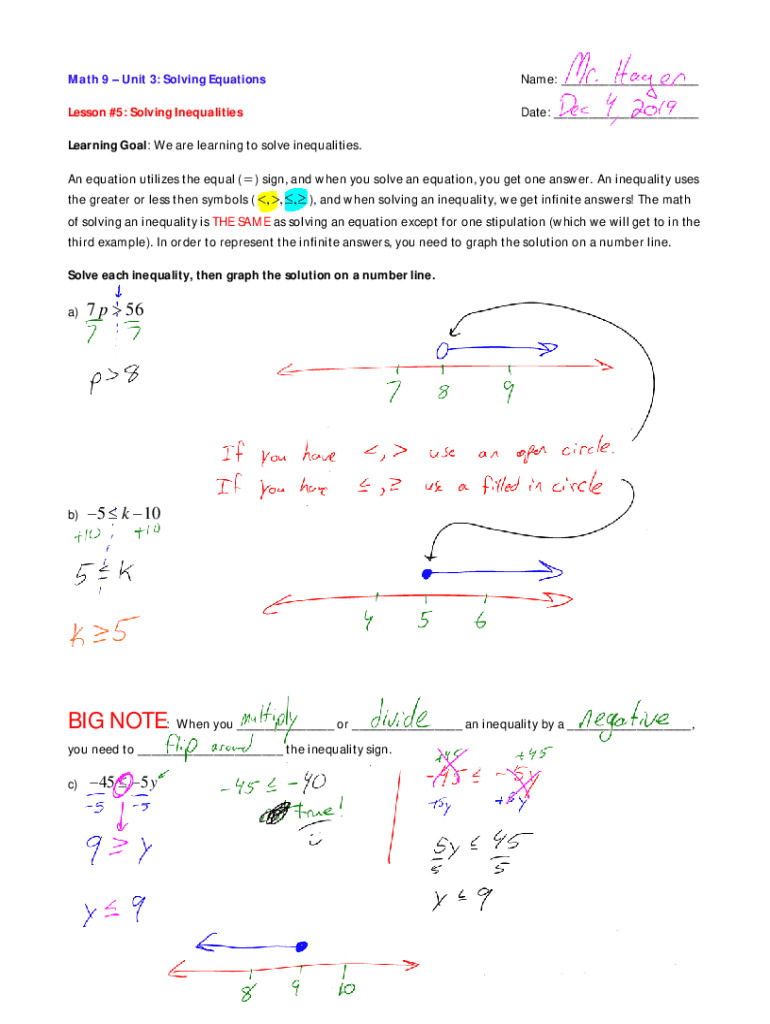 Math 9 – Unit 3: Solving Equations Name: Mr. Hagen
Lesson #5: Solving Inequalities Date: Dec 4, 2019
Learning Goal: We are learning to solve inequalities.
An equation utilizes the equal (=) sign, and when you solve an equation, you get one answer. An inequality uses
the greater or less then symbols (<,>,≤,≥), and when solving an inequality, we get infinite answers! The math
of solving an inequality is THE SAME as solving an equation except for one stipulation (which we will get to in the
third example). In order to represent the infinite answers, you need to graph the solution on a number line.
Solve each inequality, then graph the solution on a number line.
a) 7p > 56
7 7
p > 8
7 8 9
If you have <, > use an open circle.
If you have ≤, ≥ use a filled in circle
b) −5 ≤ k − 10
+10 +10
5 ≤ k
4 5 6
k ≥ 5
BIG NOTE: When you multiply or divide an inequality by a negative,
you need to flip around the inequality sign.
c) −45 ≤ −5y
-5 -5
9 ≥ y
y ≤ 9
-45 ≤ -40
true!
+45 +45
-45 ≤ -5y
+5y +5y
5y ≤ 45
5 5
y ≤ 9
8 9 10